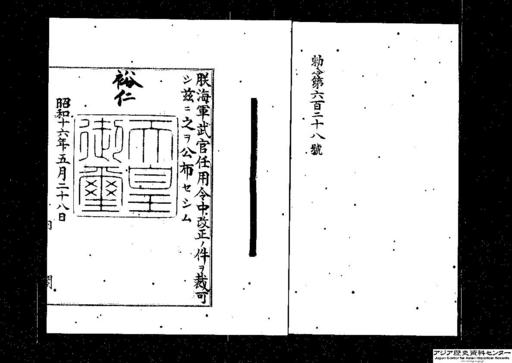 勅令第六百二十八號
朕海軍武官任用令中改正ノ件ヲ裁可
シ茲ニ之ヲ公布セシム
裕仁
天皇御璽
昭和十六年五月二十八日
内閣
アジア歴史資料センター
Japan Center for Asian Historical Records